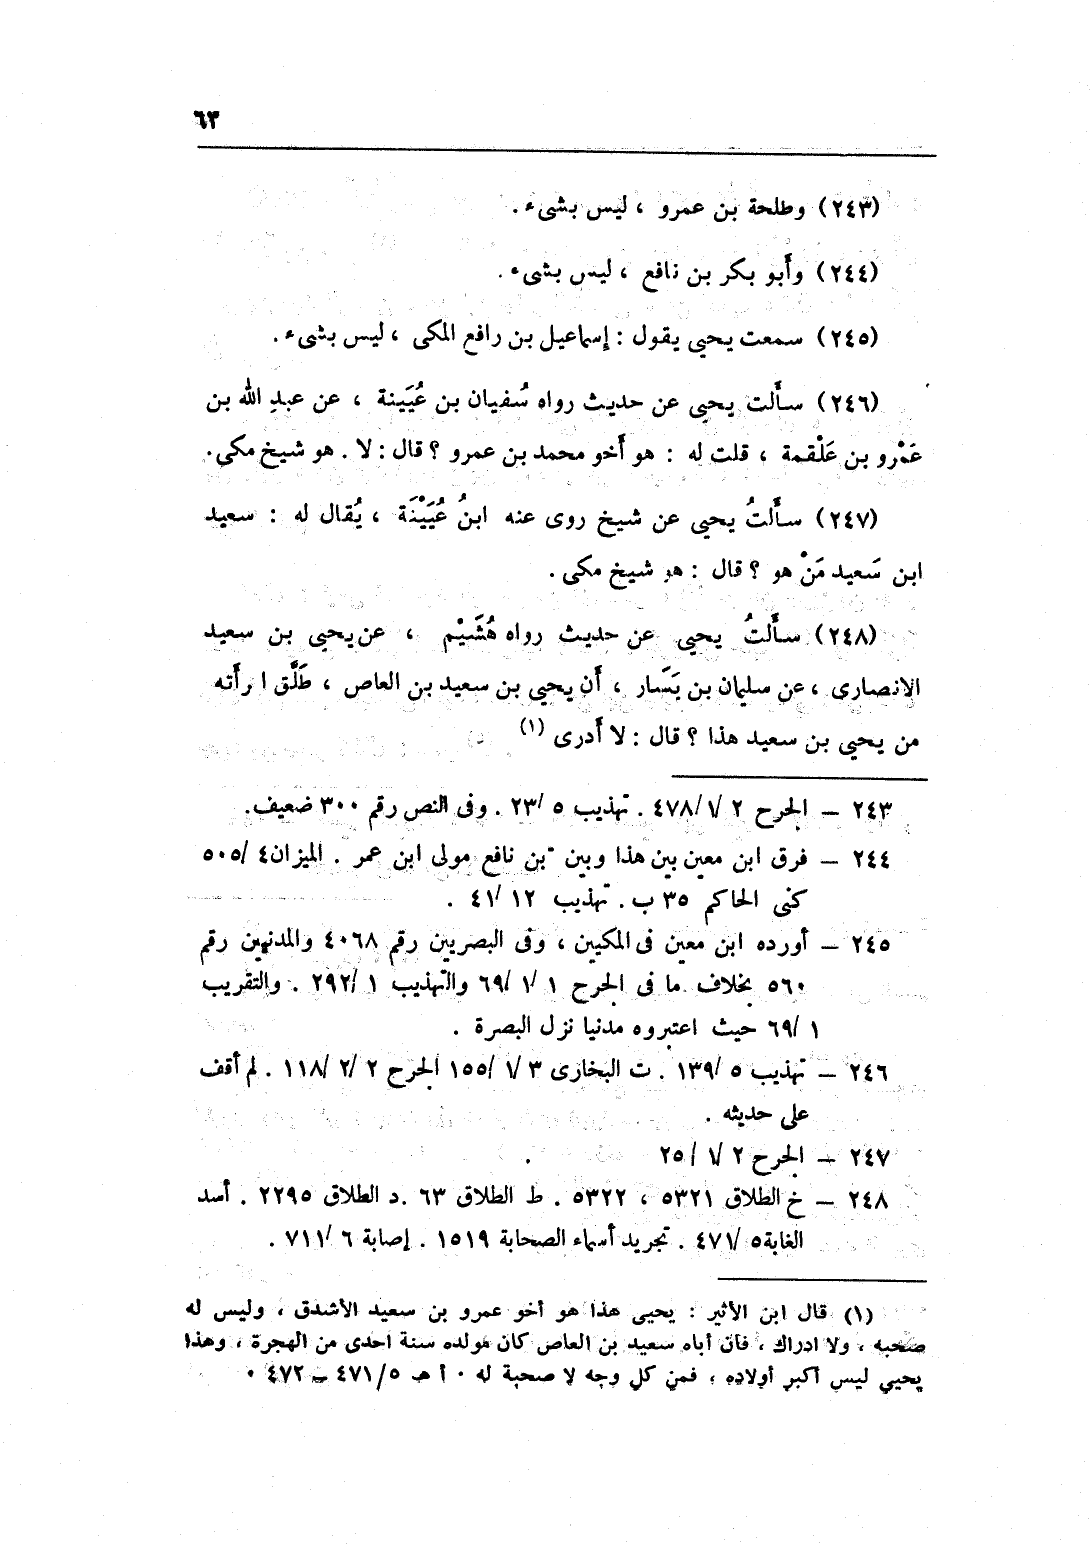 ٦٣
(٢٤٣) وطلحة بن عمرو ، ليس بشىء .
(٢٤٤) وأَبو بكر بن نافع ، ليس بشىء .
(٢٤٥) سمعت يحيى يقول : إسماعيل بن رافع المكى ، ليس بشىء .
(٢٤٦) سأَلت يحيى عن حديث رواه سُفيان بن عُيَينة ، عن عبدِ الله بن
عَمْرو بن عَلْقمة ، قلت له : هو أَخو محمد بن عمرو ؟ قال : لا . هو شيخ مكى .
(٢٤٧) سأَلتُ يحيى عن شيخ روى عنه ابنُ عُيَيْنَة ، يُقال له : سعيد
ابن سَعيد مَنْ هو ؟ قال : هو شيخ مكى .
(٢٤٨) سأَلتُ يحيى عن حديث رواه هُشَيْم ، عن يحيى بن سعيد
الانصارى ، عن سليمان بن يَسَار ، أَن يحيى بن سعيد بن العاص ، طَلَّق ا رأَته
من يحيى بن سعيد هذا ؟ قال : لا أَدرى (١)
٢٤٣ – الجرح ٢ /١/ ٤٧٨ . تهذيب ٥ /٢٣ . وفى النص رقم ٣٠٠ ضعيف.
٢٤٤ – فرق ابن معين بين هذا وبين بن نافع مولى ابن عمر . الميزان ٤ /٥٠٥
كنى الحاكم ٣٥ ب . تهذيب ١٢ /٤١ .
٢٤٥ – أورده ابن معين فى المكيين ، وفى البصريين رقم ٤٠٦٨ والمدنيين رقم
٥٦٠ بخلاف ما فى الجرح ١ /١ /٦٩ والتهذيب ١ /٢٩٢ . والتقريب
١ /٦٩ حيث اعتبروه مدنيا نزل البصرة .
٢٤٦ – تهذيب ٥ /١٣٩ . ت البخارى ٣ /١ /١٥٥ الجرح ٢ /٢ /١١٨ . لم أقف
على حديثه .
٢٤٧ – الجرح ٢ /١ / ٢٥ .
٢٤٨ – خ الطلاق ٥٣٢١ ، ٥٣٢٢ . ط الطلاق ٦٣ .د الطلاق ٢٢٩٥ . أسد
الغابة ٥ /٤٧١ . تجريد أسماء الصحابة ١٥١٩ . إصابة ٦ /٧١١ .
(١) قال ابن الأثير : يحيى هذا هو أخو عمرو بن سعيد الأشدق ، وليس له
صحبه ، ولا ادراك ، فان أباه سعيد بن العاص كان مولده سنة احدى من الهجرة ، وهذا
يحيي ليس أكبر أولاده ، فمن كل وجه لا صحبة له ٠ أ هـ ٤٧١/٥ – ٤٧٢ ٠